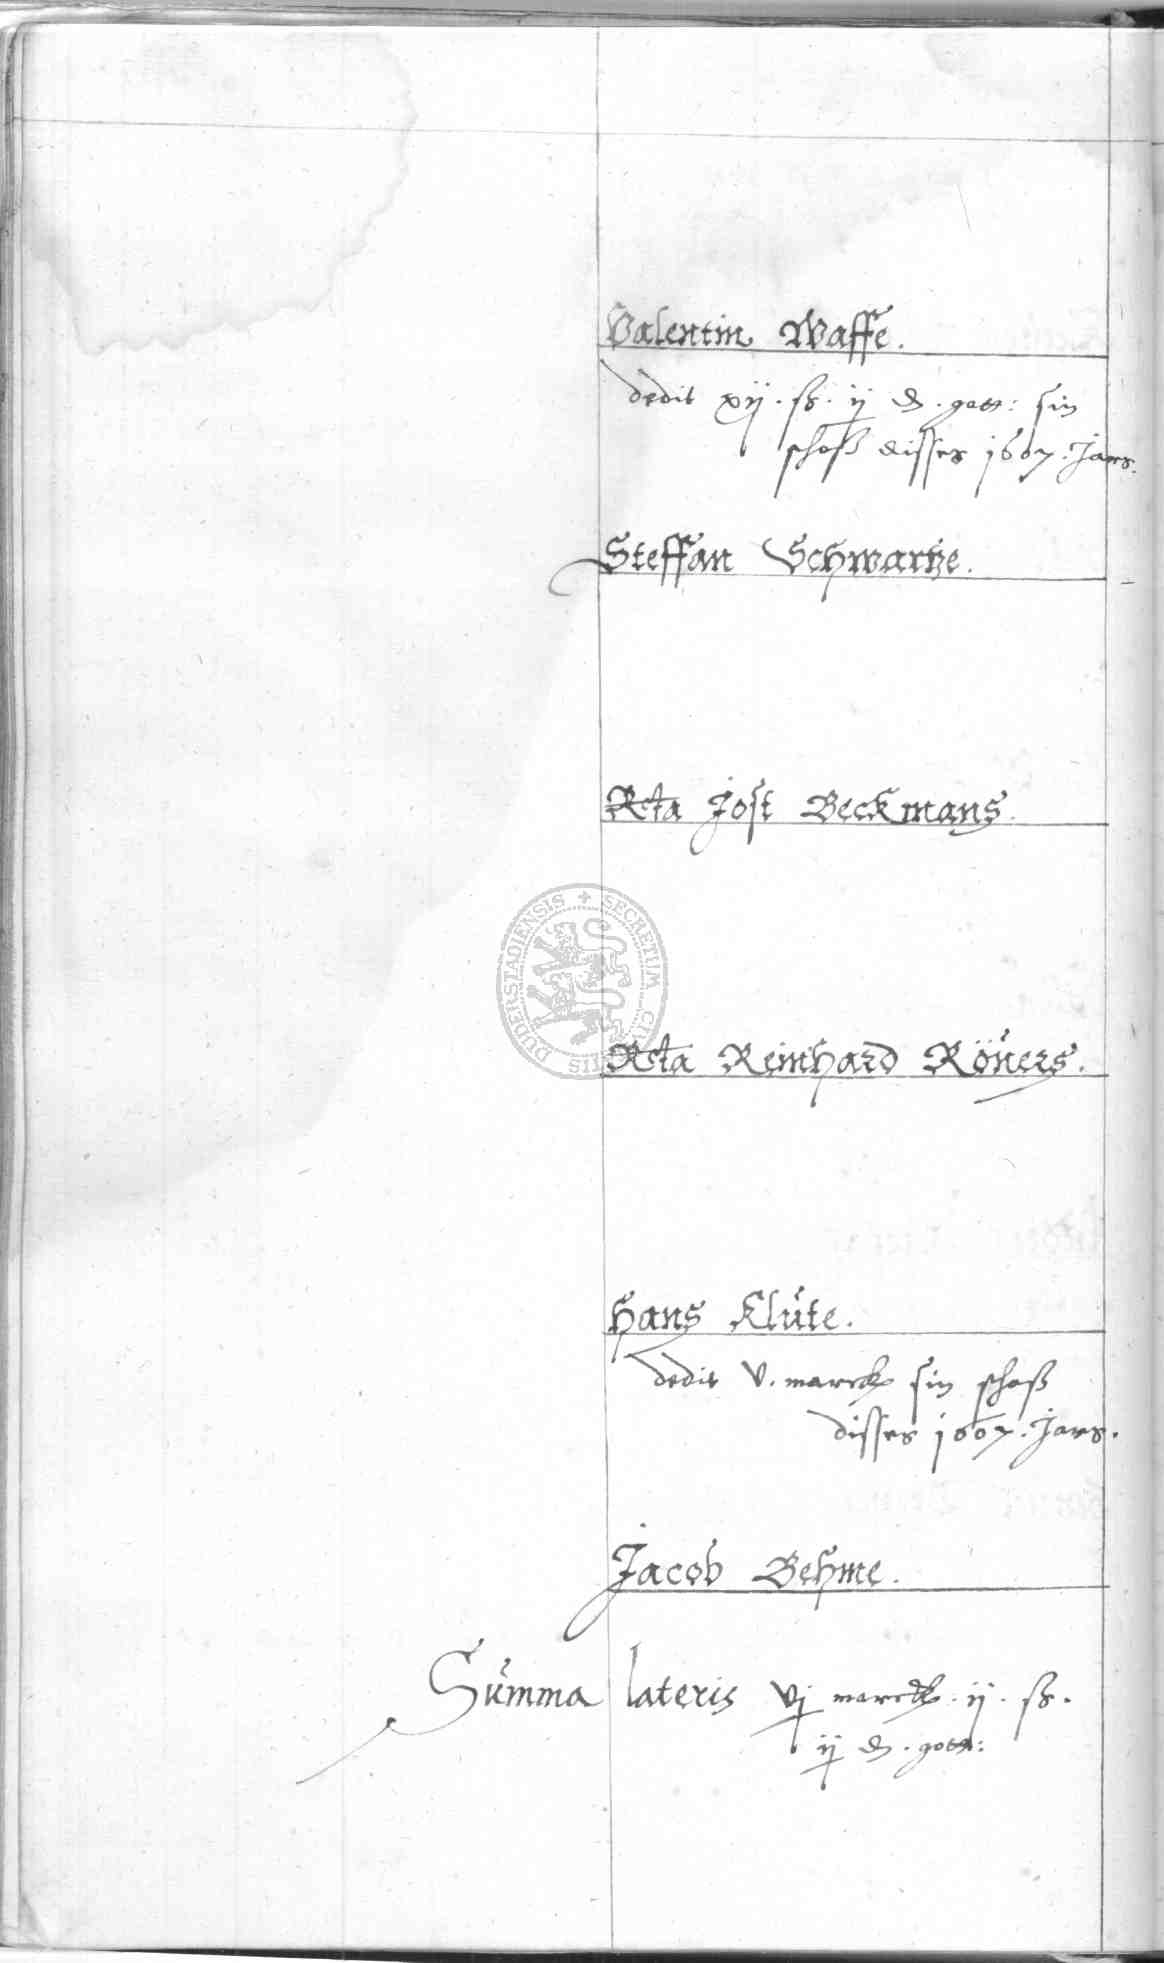 Valentin Waffe.
dedit xij . ß . ij d . gott: sin
schoß disses 1607 . Jars.
Steffan Schwartze.
Rcta Jost Beckmans.
DUDERSTADIENSIS + SECRETUM CIVITATIS
Rcta Reinhard Röners.
Hans Klůte.
dedit v . marck sin schoß
disses 1607 . Jars.
Jacob Behme.
Sůmma lateris vj marck . ij . ß .
ij d . gott: